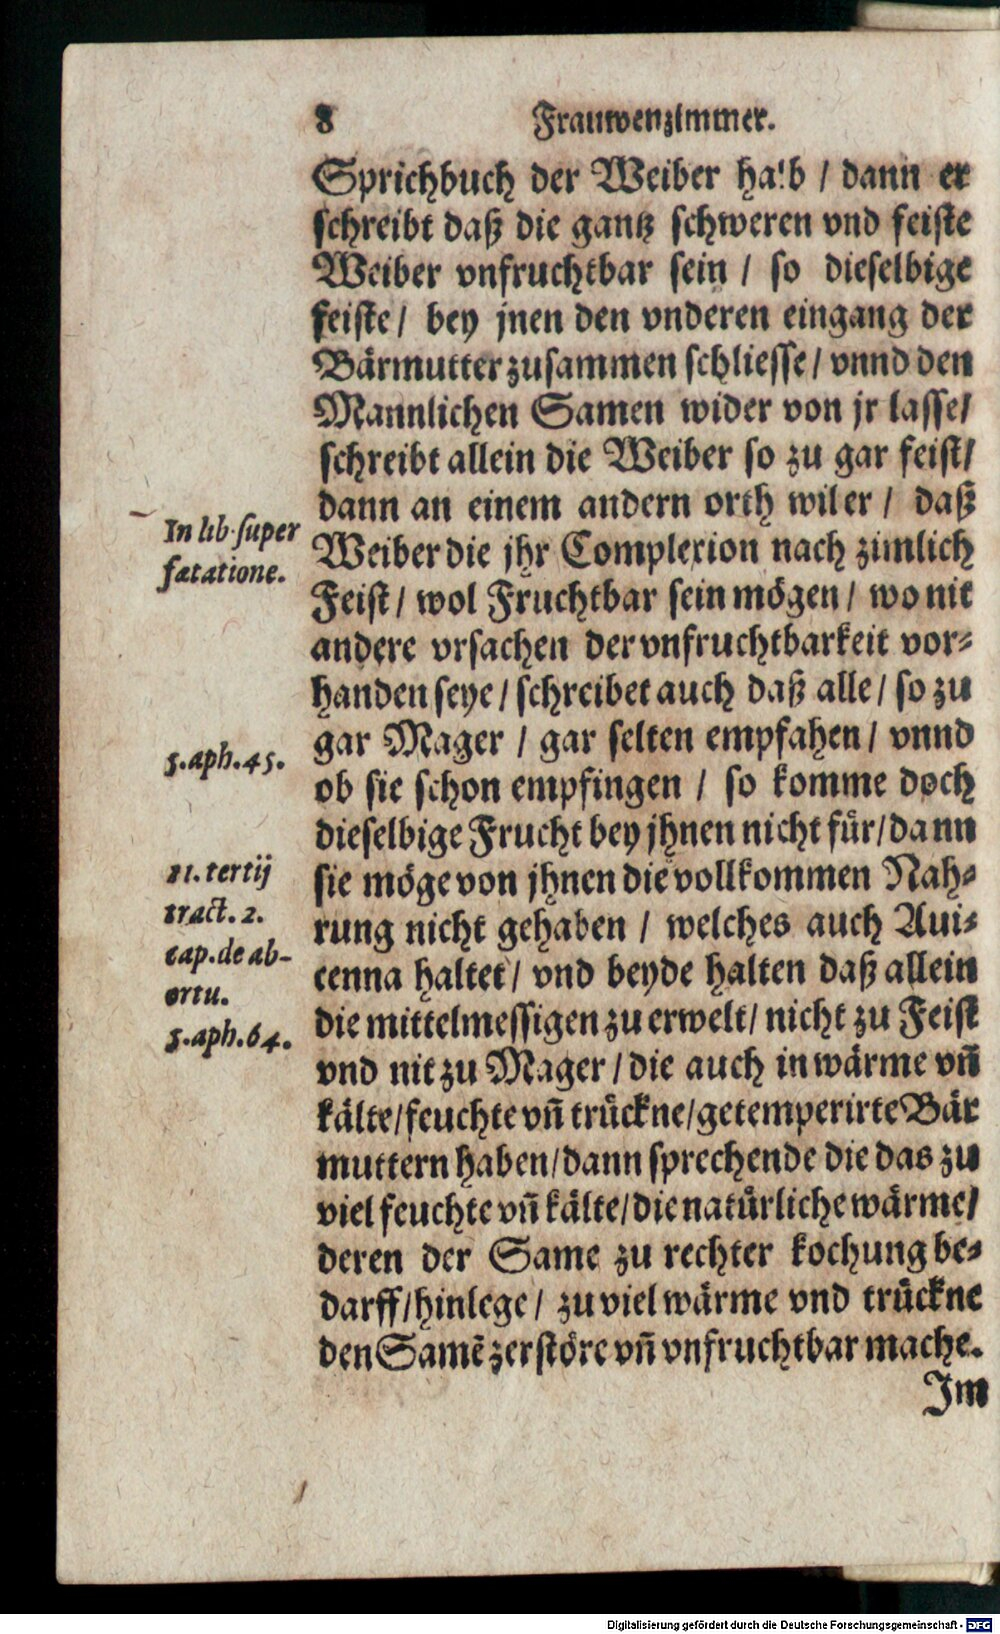 8 Frauwenzimmer.
Sprichbuch der Weiber halb / dann er
schreibt daß die gantz schweren vnd feiste
Weiber vnfruchtbar sein / so dieselbige
feiste / bey jnen den vnderen eingang der
Bärmutter zusammen schliesse / vnnd den
Mannlichen Samen wider von jr lasse /
schreibt allein die Weiber so zu gar feist /
dann an einem andern orth wil er / daß
In lib. super
Weiber die jhr Complexion nach zimlich
fætatione.
Feist / wol Fruchtbar sein mögen / wo nit
andere vrsachen der vnfruchtbarkeit vor⸗
handen seye / schreibet auch daß alle / so zu
gar Mager / gar selten empfahen / vnnd
5. aph. 45.
ob sie schon empfingen / so komme doch
dieselbige Frucht bey jhnen nicht für / dann
21. tertij
sie möge von jhnen die vollkommen Nah⸗
tract. 2.
rung nicht gehaben / welches auch Aui⸗
cap. de ab-
cenna haltet / vnd beyde halten daß allein
ortu.
die mittelmessigen zu erwelt / nicht zu Feist
5. aph. 64.
vnd nit zu Mager / die auch in wärme vñ
kälte / feuchte vñ trückne / getemperirte Bär
muttern haben / dann sprechende die das zu
viel feuchte vñ kälte / die natürliche wärme /
deren der Same zu rechter kochung be⸗
darff / hinlege / zu viel wärme vnd trückne
den Samẽ zerstöre vñ vnfruchtbar mache.
Im
Digitalisierung gefördert durch die Deutsche Forschungsgemeinschaft - DFG